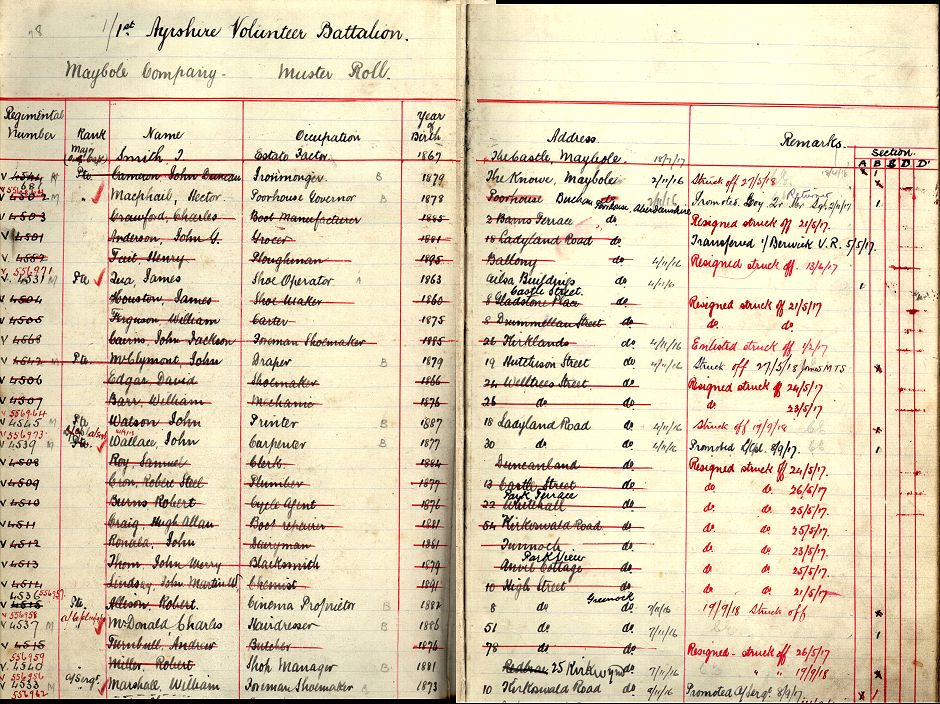 78 1/1st Ayrshire Volunteer Battalion.
Maybole Company - Muster Roll.
Regimental Number Rank Name Occupation Year of Birth Address Remarks. Section
A B C D D'
Smith J Estate Factor 1867 The Castle, Maybole 18/7/17
V 4541 Pte Cameron John Duncan Ironmonger B 1879 The Knowe, Maybole 2/11/16 Struck off 27/5/18
V 4502 " Macphail, Hector Poorhouse Governor B 1878 Poorhouse do Poorhouse, Aberdeenshire Promoted
V 4503 Crawford, Charles Boot Manufacturer 1885 2 Barns Terrace do Resigned struck off 21/5/17.
V 4501 Anderson, John G. Grocer 1881 18 Ladyland Road do Transferred 1/Berwick V.R. 5/5/17.
V 4552 Tait Henry Ploughman 1895 Baltony do 4/11/16 Resigned struck off. 13/6/17
556971
V. 4531 M Pte James Shoe Operator A 1863 Ailsa Buildings do
V 4504 Houston, James Shoe Maker 1860 Castle Street 8 Gladstone Place do Resigned struck off 21/5/17
V 4505 Ferguson, William Carter 1875 8 Drummellan Street do do do
V 4568 Cairns John Jackson Foreman Shoemaker 1885 26 Kirklands do 4/11/16 Enlisted struck off 1/2/17
V 4542 M Pte McClymont, John Draper B 1879 19 Hutchison Street do 4/11/16 Struck off 27/5/18 Joined M.T.S
V 4506 Edgar David Shoemaker 1866 24 Welltrees Street do Resigned struck off 24/5/17
V 4507 Barr, William Mechanic 1876 26 do do do 23/5/17
556964
V 4545 M Pte Watson John Printer B 1887 18 Ladyland Road do 4/11/16 Struck off 19/9/18
V 556973
V 4539 M Pte. Wallace, John Carpenter B 1877 30 do do 4/11/16 Promoted L/Cpl. 8/9/17.
V 4508 Roy, Samuel Clerk 1884 Duncanland do Resigned struck off 24/5/17.
V 4509 Cron, Robert Steel Plumber 1877 13 Castle Street do do do 26/5/17
V 4510 Burns Robert Cycle Agent 1876 Park Terrace 22 Whitehall do do do 25/5/17
V 4511 Craig Hugh Allan Boot repairer 1881 54 Kirkoswald Road do do do 25/5/17.
V 4512 Ronald, John Dairyman 1861 Tunnoch do do do 23/5/17.
V 4513 Thom, John Merry Blacksmith 1879 Park View Anvil Cottage do do do 25/5/17.
V 4514 Lindsay, John Martin W. Chemist 1891 10 High Street do do do 21/5/17
4536 556957
V 4516 Pte. Allison, Robert. Cinema Proprietor B 1882 8 do Greenock do 7/11/16 19/9/18 Struck off
556958
V 4537 M McDonald Charles Hairdresser B 1886 51 do do 7/11/16
V 4515 Turnbull, Andrew Butcher 1876 78 do do Resigned - struck off 26/5/17
556959
V 4540 Miller Robert Shop Manager B 1881 25 Kirkwynd do 7/11/16 " " 19/9/18
556956
V 4533 M a/Sergt Marshall, William Foreman Shoemaker B 1873 10 Kirkoswald Road do 9/11/16 Promoted A/Sergt 8/9/17.
556962